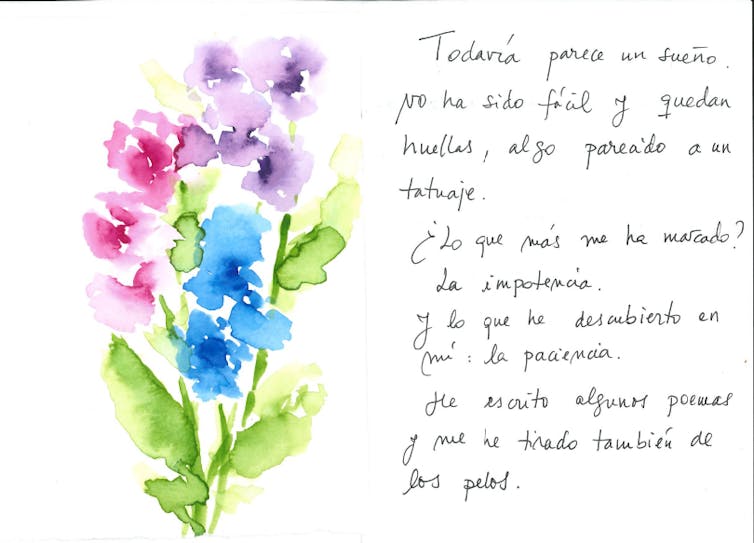 Todavía parece un sueño.
No ha sido fácil y quedan
huellas, algo parecido a un
tatuaje.
¿Lo que más me ha marcado?
La impotencia.
Y lo que he descubierto en
mí: la paciencia.
He escrito algunos poemas
y me he tirado también de
los pelos.